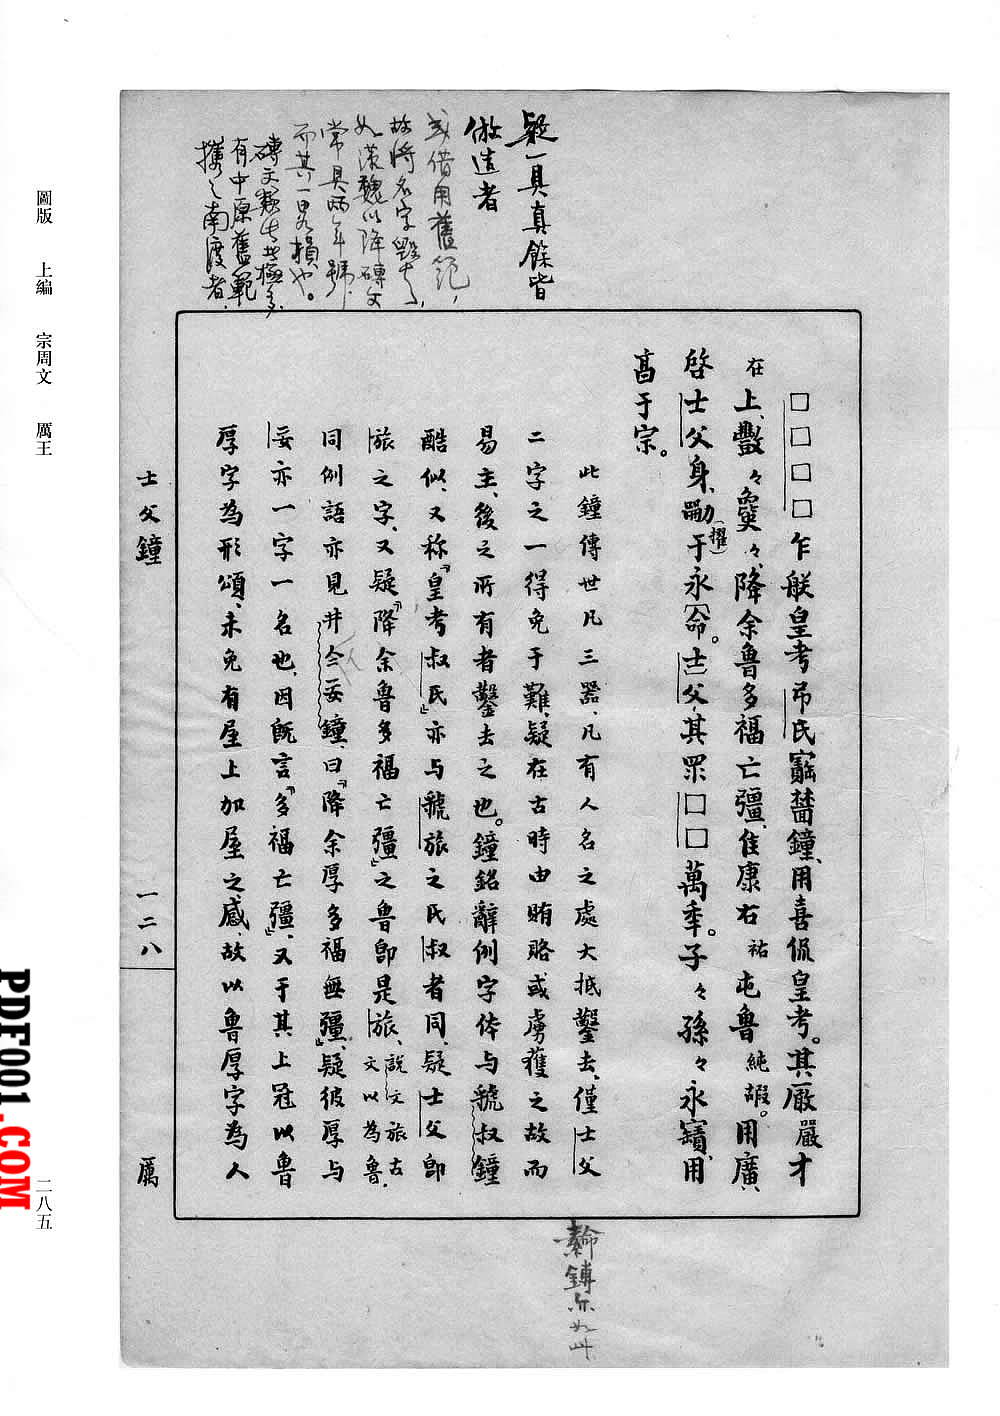 疑一真真餘皆
倣造者
或借用舊範，
故將名字毀去，
如漢魏以降磚文
常具兩年號，
而其一曰凡損也。
磚文類此者極多，
有中原舊範
攜之南渡者，
□□□□乍朕皇考弔氏寶薔鐘，用喜侃皇考。其嚴嚴才
在上，數々㲋々，降余魯多福亡彊，隹康右祐屯魯純嘏。用廣
啓士父身，勵(擢)于永命。士父其眔□□萬年。子々孫々永寶，用
亯于宗。
此鐘傳世凡三器，凡有人名之處大抵鑿去，僅士父
二字之一得免于難，疑在古時由賄賂或虜獲之故而
易主，後之所有者鑿去之也。鐘銘辭例字体与虢叔鐘
酷似，又称『皇考叔氏』亦与虢旅之氏叔者同，疑士父即
旅之字，又疑『降余魯多福亡彊』之魯即是旅，說文旅古文以為魯。
同例語亦見井人妄鐘，曰『降余厚多福無彊』，疑彼厚与
妄亦一字一名也，因既言『多福亡彊』，又于其上冠以魯
厚字為形頌，未免有屋上加屋之感，故以魯厚字為人
士父鐘
一二八
厲
素命鎛亦如此
圖版 上編 宗周文 厲王
二八五
PDF001.COM